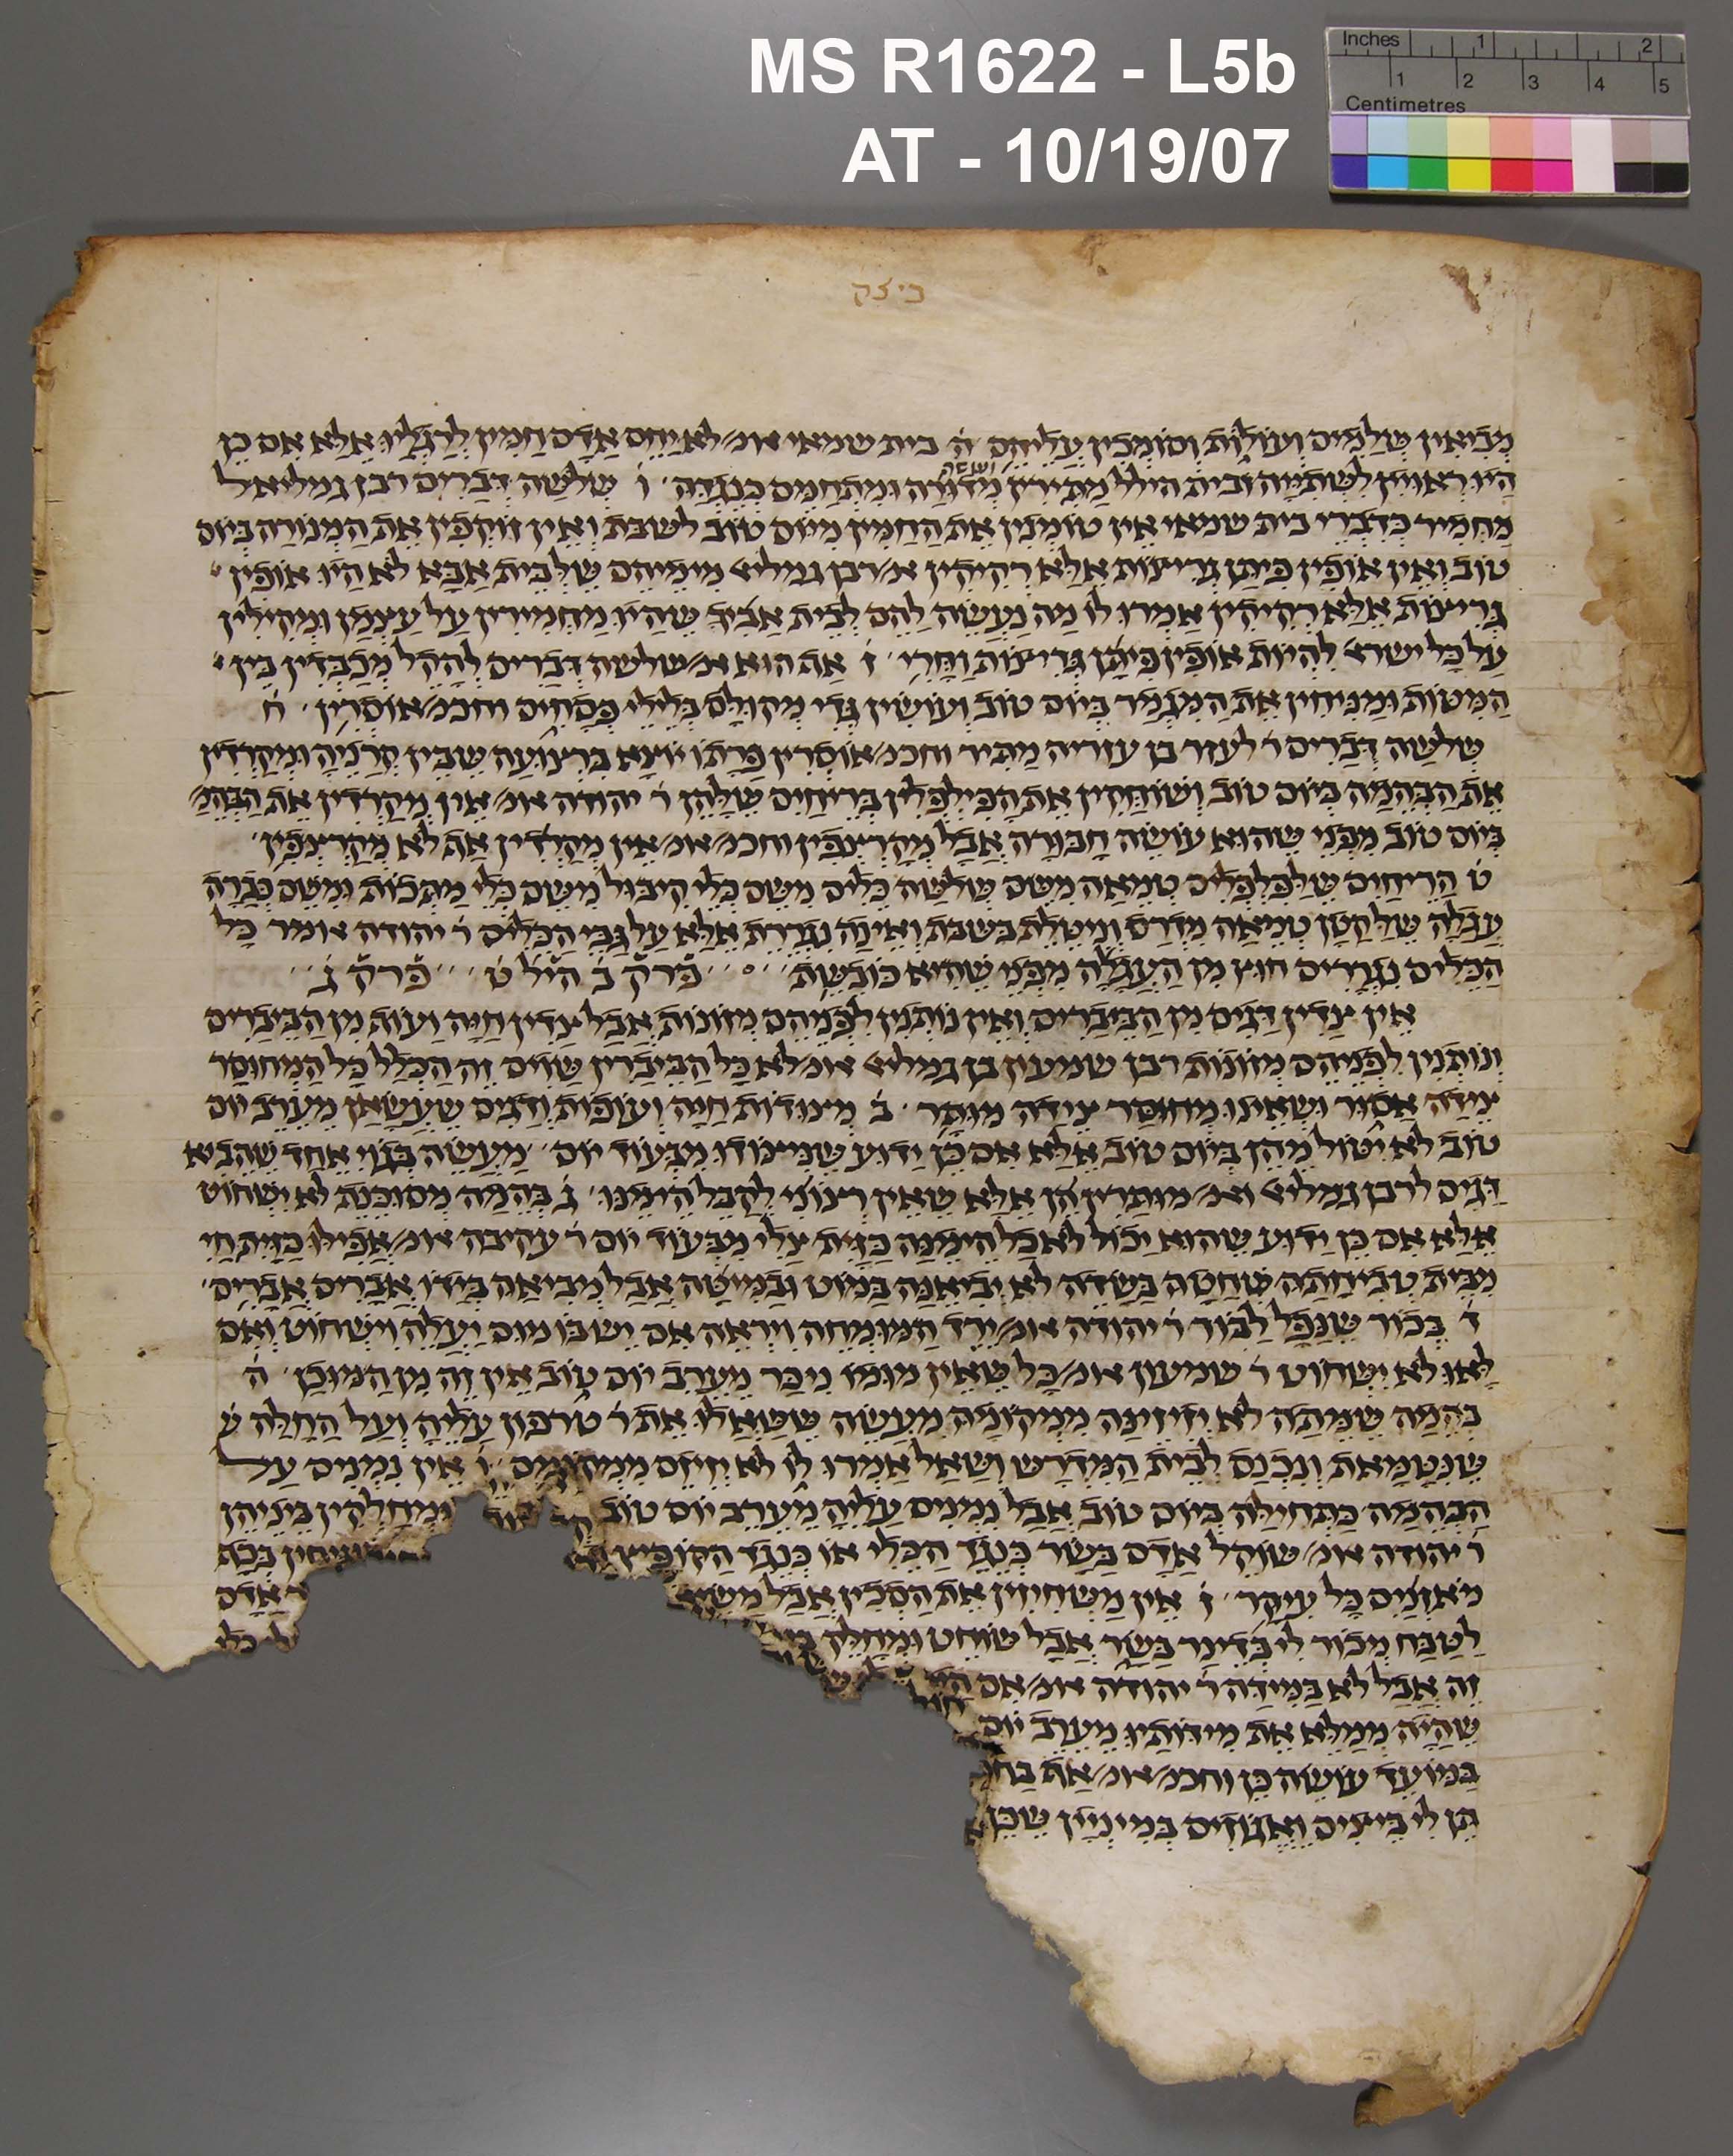 MS R1622 - L5b
AT - 10/19/07
Inches 1 2
1 2 3 4 5
Centimetres
ביצה
מביאין שלמים ועולות וסומכין עליהם ה בית שמאי אומ/ לא יחם אדם חמין לרגליו אלא אם כן
היו ראויין לשתייה ובית הילל מתירין
מדורה ומתחמם כנגדה ו שלשה דברים רבן גמליאל
מחמיר כדברי בית שמאי אין טומנין את החמין מיום טוב לשבת ואין זוקפין את המנורה ביום
טוב ואין אופין פיתן גריצות אלא רקיקין א/ רבן גמליא מימיהם שלבית אבא לא היו אופין
גריצות אלא רקיקין אמרו לו מה נעשה להם לבית אביך שהיו מחמירין על עצמן ומקילין
על כל ישרא להיות אופין פיתן גריצות וחרי ז אף הוא אמ/ שלשה דברים להקל מכבדין בין
המטות ומניחין את המגמר ביום טוב ועושין גדי מקולס בלילי פסחים וחכמ/ אוסרין ח
שלשה דברים ר לעזר בן עזריה מתיר וחכמ/ אוסרין פרתו יוצא ברצועה שבין קרניה ומקרדין
את הבהמה ביום טוב ושוחקין את הפילפלין בריחים שלהן ר יהודה אומ/ אין מקרדין את הבהמ/
ביום טוב מפני שהוא עושה חבורה אבל מקרצפין וחכמ/ אומ/ אין מקרדין אף לא מקרצפין
ט הריחים שלפלפלים טמאה משם שלשה כלים משם כלי קיבול משם כלי מתכות ומשם כברה
עגלה שלקטן טמיאה מדרס וניטלת בשבת ואינה נגררת אלא על גבי הכלים ר יהודה אומר כל
הכלים נגררים חוץ מן העגלה מפני שהיא כובשת פרק ב היל ט פרק ג
אין צדין דגים מן הביברים ואין נותנין לפניהם מזונות אבל צדין חיה ועוף מן הביברים
ונותנין לפניהם מזונות רבן שמעון בן גמליא אומ/ לא כל הביברין שוים זה הכלל כל המחוסר
צידה אסור ושאינו מחוסר צידה מותר ב מצודות חיה ועופות ודגים שעשאן מערב יום
טוב לא יטול מהן ביום טוב אלא אם כן ידוע שניצודו מבעוד יום מעשה בגוי אחד שהביא
דגים לרבן גמליא ואמ/ מותרין הן אלא שאין רצוני לקבל הימנו ג בהמה מסוכנת לא ישחוט
אלא אם כן ידוע שהוא יכול לאכל הימנה כזית צלי מבעוד יום ר עקיבה אומ/ אפילו כזית חי
מבית טביחתה שחטה בשדה לא יביאנה במוט ובמיטה אבל מביאה בידו אברים אברים
ד בכור שנפל לבור ר יהודה אומ/ ירד המומחה ויראה אם יש בו מום יעלה וישחוט ואם
לאו לא ישחוט ר שמעון אומ/ כל שאין מומו ניכר מערב יום טוב אין זה מן המוכן ה
בהמה שמתה לא יזיזנה ממקומה מעשה ששאלו את ר טרפון עליה ועל החלה ש
שניטמאת ונכנס לבית המדרש ושאל אמרו לו לא יזיזם ממקומם ו אין נמנים על
הבהמה כתחילה ביום טוב אבל נמנים עליה מערב יום טוב ומחלקין ביניהן
ר יהודה אומ/ שוקל אדם בשר כנגד הכלי או כנגד הקופיץ בכף
מאזנים כל עיקר ז אין משחיזין את הסכין אבל אדם
לטבח מכור לי בדינר בשר אבל שוחט ומחלק כל
זה אבל לא במידה ר יהודה אומ/ אם
שהיה ממלא את מידותיו מערב יום
במועד עושה כן וחכמ/ אומ/ אף
תן לי ביצים ואגוזים במיניין שכן